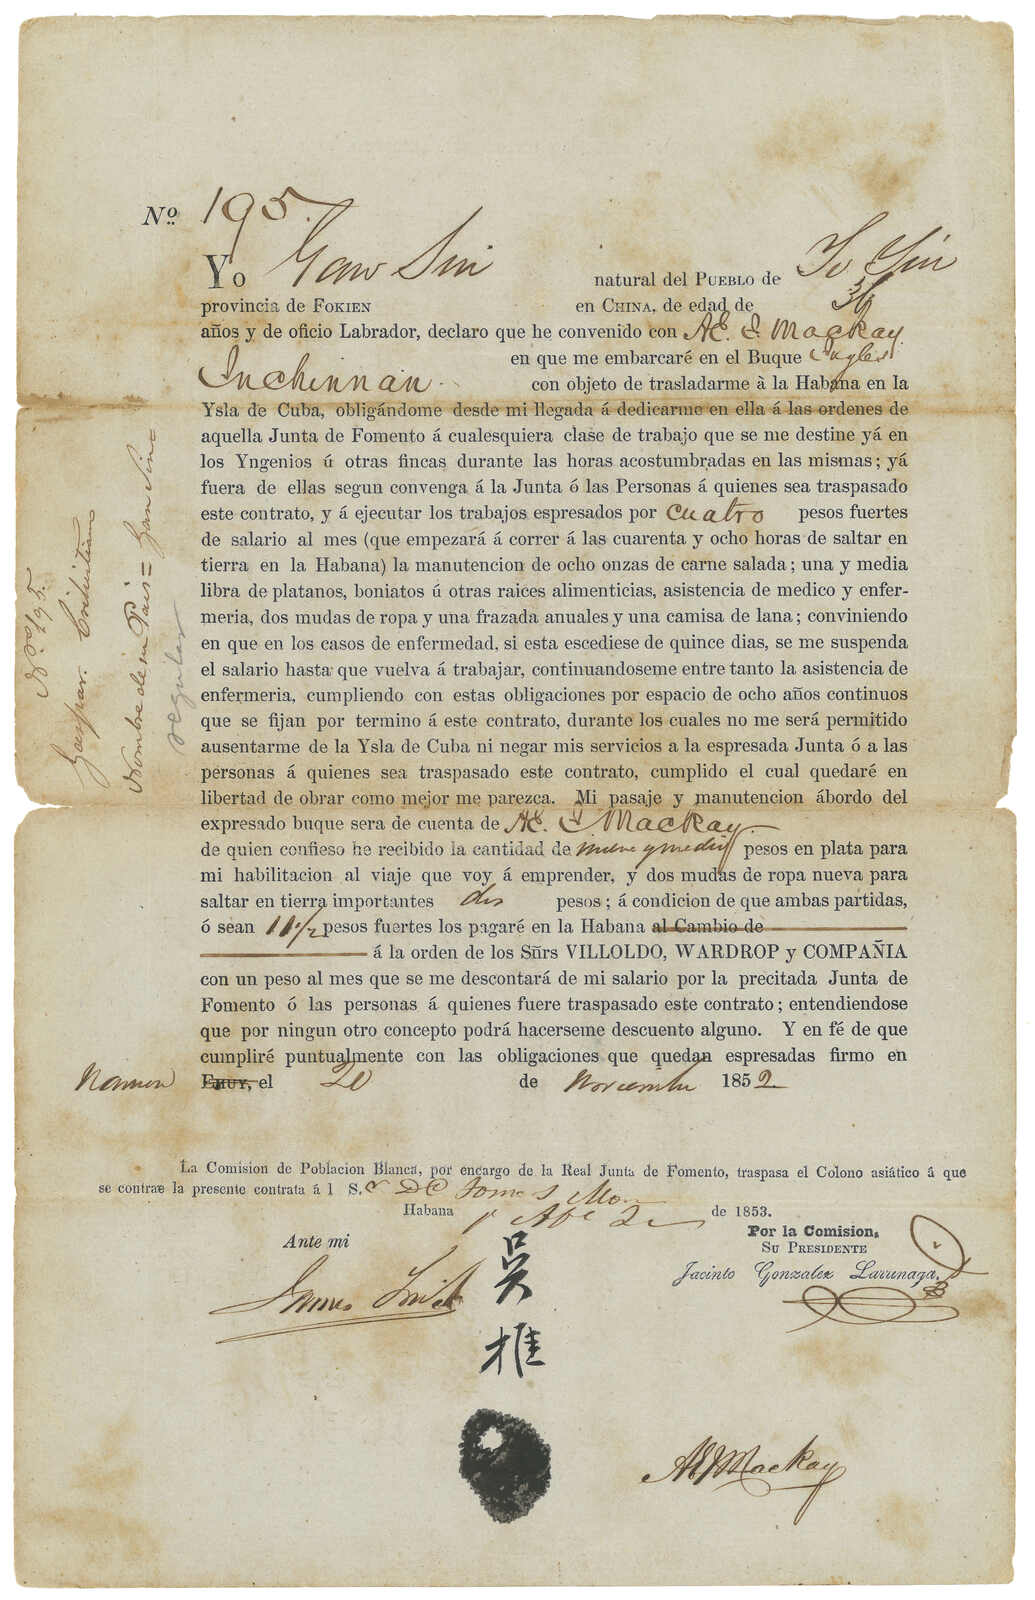 No. 195.
Yo Gaw Sin natural del PUEBLO de
provincia de FOKIEN en CHINA, de edad de
años y de oficio Labrador, declaro que he convenido con A.E. & I. Mackay
en que me embarcaré en el Buque Yngles
Inchinnan con objeto de trasladarme à la Habana en la
Ysla de Cuba, obligándome desde mi llegada á dedicarme en ella á las ordenes de
aquella Junta de Fomento á cualesquiera clase de trabajo que se me destine yá en
los Yngenios ú otras fincas durante las horas acostumbradas en las mismas; yá
fuera de ellas segun convenga á la Junta ó las Personas á quienes sea traspasado
este contrato, y á ejecutar los trabajos espresados por cuatro pesos fuertes
de salario al mes (que empezará á correr á las cuarenta y ocho horas de saltar en
tierra en la Habana) la manutencion de ocho onzas de carne salada; una y media
libra de platanos, boniatos ú otras raices alimenticias, asistencia de medico y enfer-
meria, dos mudas de ropa y una frazada anuales y una camisa de lana; conviniendo
en que en los casos de enfermedad, si esta escediese de quince dias, se me suspenda
el salario hasta que vuelva á trabajar, continuandoseme entre tanto la asistencia de
enfermeria, cumpliendo con estas obligaciones por espacio de ocho años continuos
que se fijan por termino á este contrato, durante los cuales no me será permitido
ausentarme de la Ysla de Cuba ni negar mis servicios a la espresada Junta ó a las
personas á quienes sea traspasado este contrato, cumplido el cual quedaré en
libertad de obrar como mejor me parezca. Mi pasaje y manutencion ábordo del
expresado buque sera de cuenta de A.E. & I. Mackay
de quien confieso he recibido la cantidad de nueve y medio pesos en plata para
mi habilitacion al viaje que voy á emprender, y dos mudas de ropa nueva para
saltar en tierra importantes dos pesos; á condicion de que ambas partidas,
ó sean 11 1/2 pesos fuertes los pagaré en la Habana al Cambio de
á la orden de los Sñrs VILLOLDO, WARDROP y COMPAÑIA
con un peso al mes que se me descontará de mi salario por la precitada Junta de
Fomento ó las personas á quienes fuere traspasado este contrato; entendiendose
que por ningun otro concepto podrá hacerseme descuento alguno. Y en fé de que
cumpliré puntualmente con las obligaciones que quedan espresadas firmo en
Namon EMUY, el 20 de Noviembre 1852
La Comision de Poblacion Blanca, por encargo de la Real Junta de Fomento, traspasa el Colono asiático á que
se contrae la presente contrata á l S.r Dn Tomas
Habana de 1853.
Ante mi
Por la Comision,
SU PRESIDENTE
Jacinto Gonzalez Larrinaga.
吳
推
AEMackay
No. 195.
Gaspar
Nombre de su Pais = Gau Sin
regular